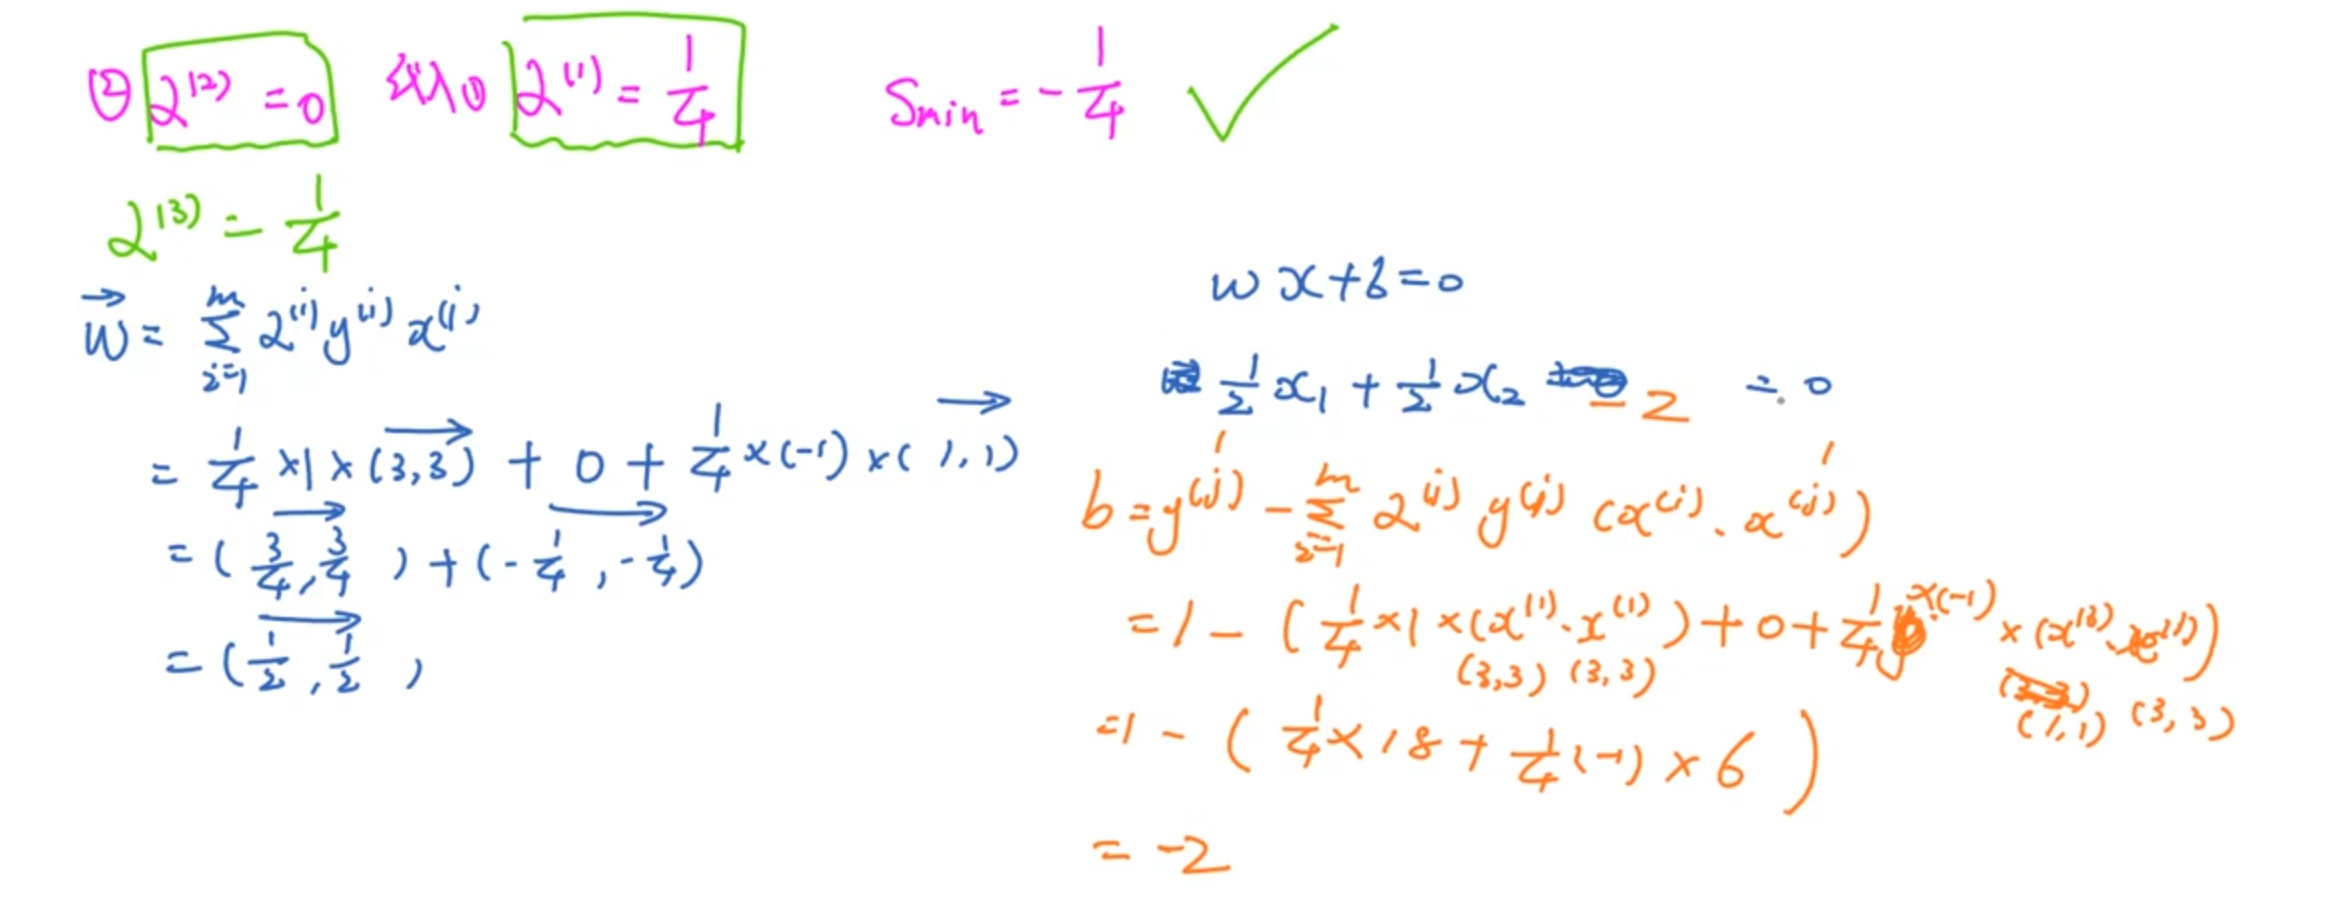 ② 2⁽²⁾ = 0 代入① 2⁽¹⁾ = 1/4 Smin = -1/4 ✓
2⁽³⁾ = 1/4
w⃗ = Σ_{i=1}^{m} 2⁽ⁱ⁾ y⁽ⁱ⁾ x⁽ⁱ⁾
= 1/4 × 1 × (3,3) + 0 + 1/4 × (-1) × (1,1)
= (3/4, 3/4) + (-1/4, -1/4)
= (1/2, 1/2)
w x + b = 0
1/2 x₁ + 1/2 x₂ - 2 = 0
b = y⁽ʲ⁾ - Σ_{i=1}^{m} 2⁽ⁱ⁾ y⁽ⁱ⁾ (x⁽ⁱ⁾ · x⁽ʲ⁾)
= 1 - (1/4 × 1 × (x⁽¹⁾ · x⁽¹⁾) + 0 + 1/4 × (-1) × (x⁽³⁾ · x⁽¹⁾))
(3,3) (3,3) (1,1) (3,3)
= 1 - (1/4 × 18 + 1/4 (-1) × 6)
= -2